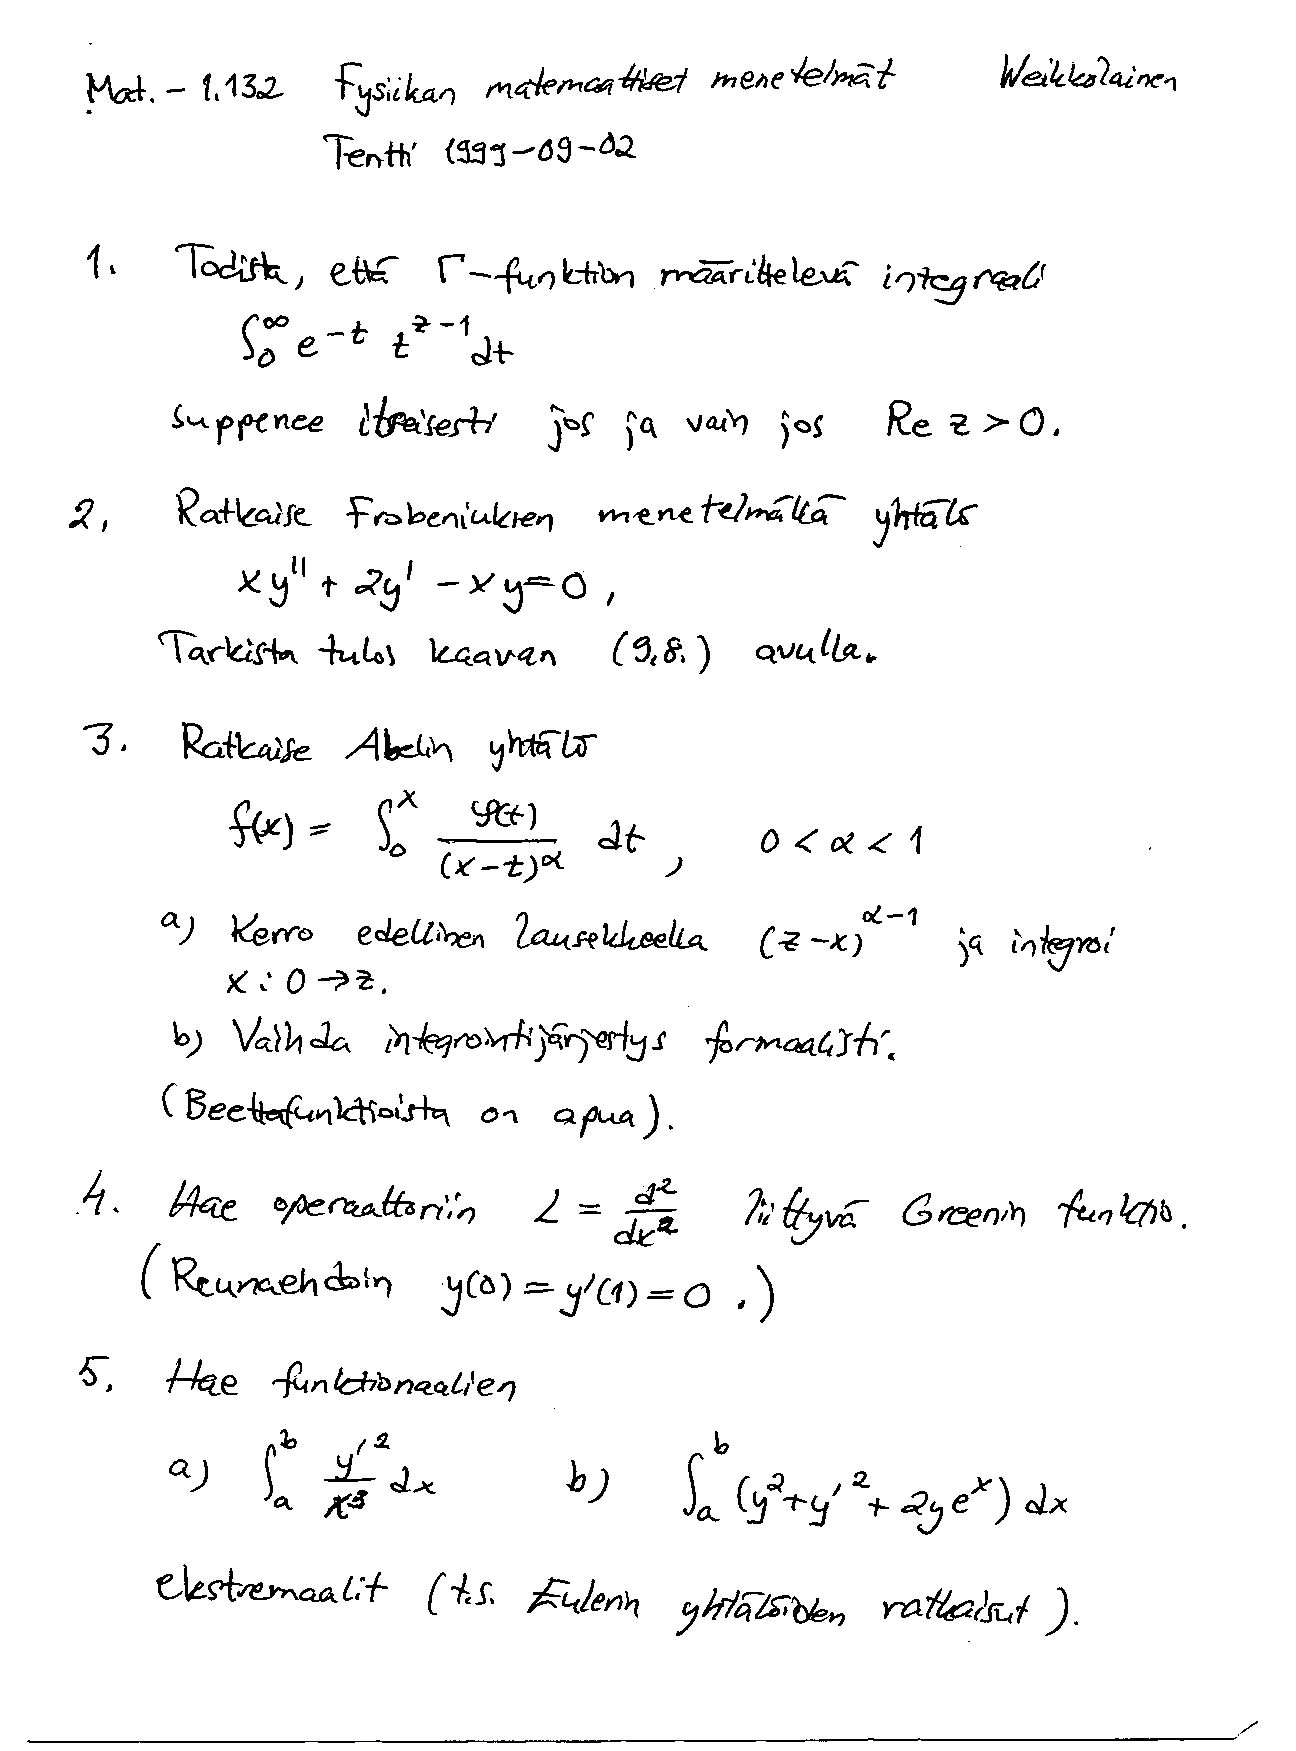 Mat. - 1.132 Fysiikan matemaattiset menetelmät Weikkolainen
Tentti 1999-09-02
1. Todista, että Γ-funktion määrittelevä integraali
∫₀^∞ e^{-t} t^{z-1} dt
suppenee itseisesti jos ja vain jos Re z > 0.
2. Ratkaise Frobeniuksen menetelmällä yhtälö
xy'' + 2y' - xy = 0,
Tarkista tulos kaavan (9.8.) avulla.
3. Ratkaise Abelin yhtälö
f(x) = ∫₀^x φ(t)/(x-t)^α dt, 0 < α < 1
a) Kerro edellinen lausekkeella (z-x)^{α-1} ja integroi
x : 0 → z.
b) Vaihda integrointijärjestys formaalisti.
(Beettafunktioista on apua).
4. Hae operaattoriin L = d²/dx² liittyvä Greenin funktio.
(Reunaehdoin y(0) = y'(1) = 0.)
5. Hae funktionaalien
a) ∫_a^b y'²/x³ dx b) ∫_a^b (y² + y'² + 2ye^x) dx
ekstremaalit (t.s. Eulerin yhtälöiden ratkaisut).